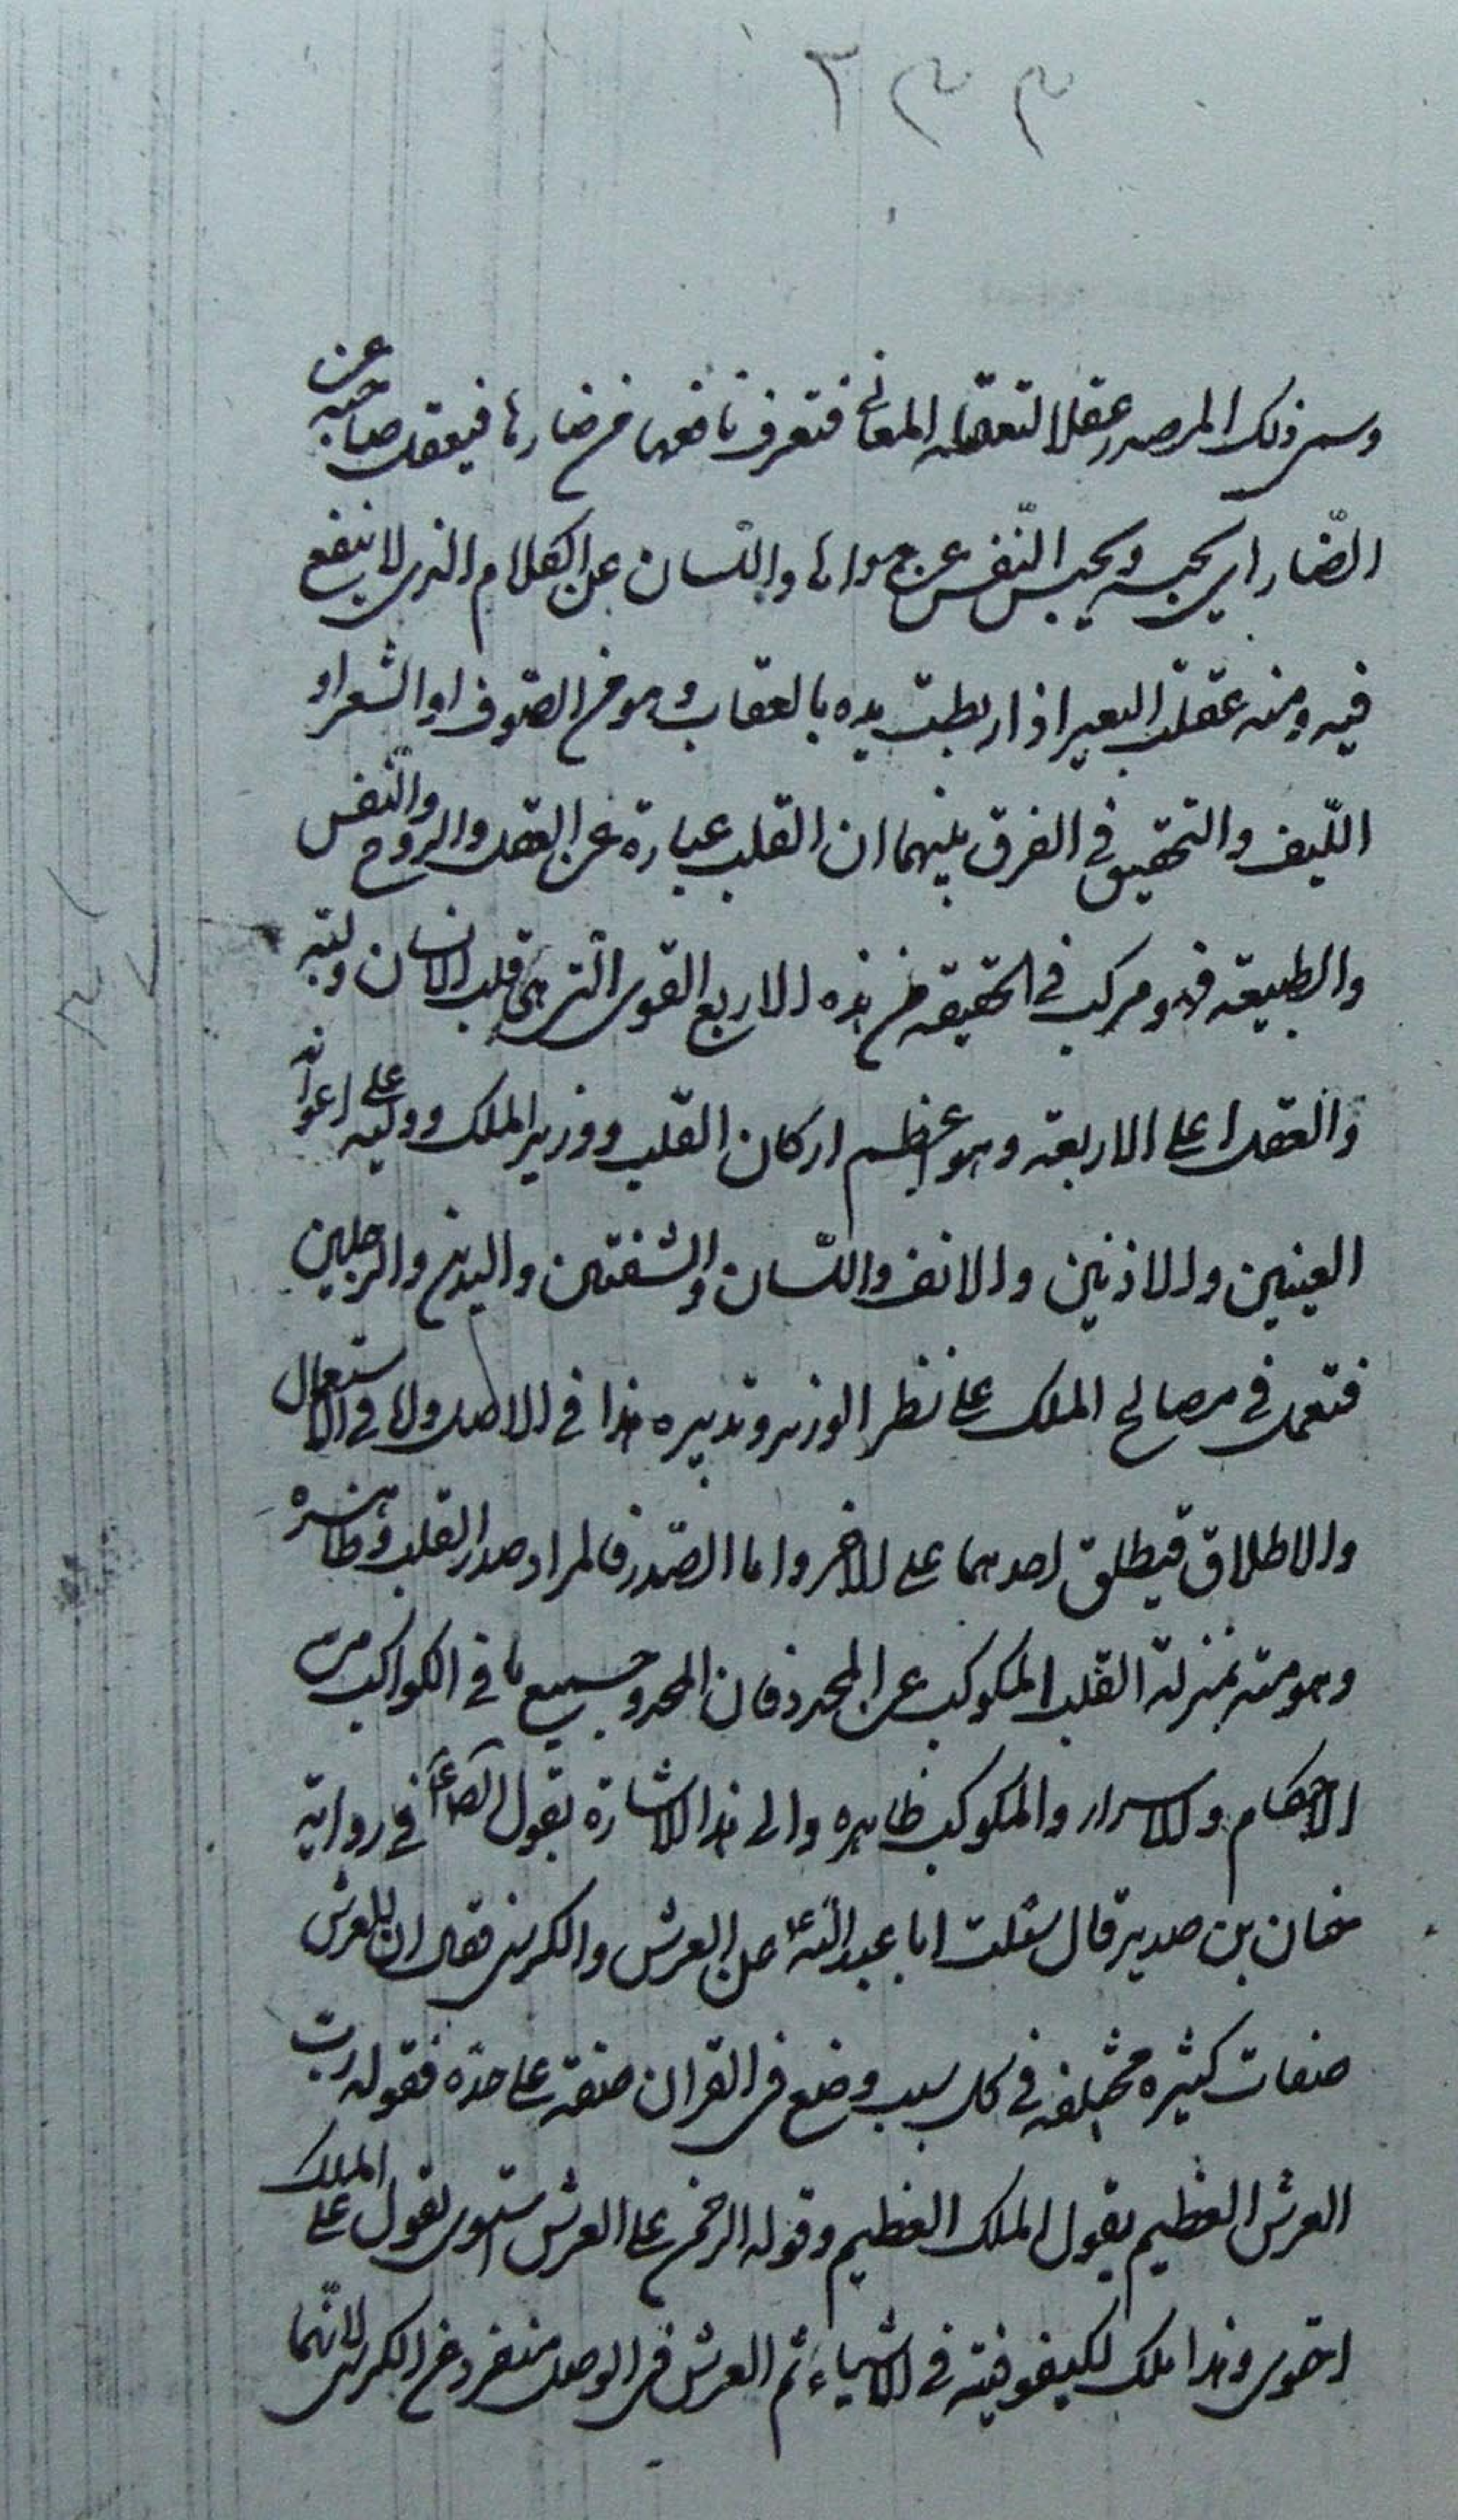 ٢٣٣
وسمي ذلك المصدر عقلا لتعقله المعاني فتعرف نافعها من ضارها فيعقل صاحبه عن
الضّار اي يحبسه ويحبس النّفس عن هواها واللّسان عن الكلام الذي لا ينفع
فيه ومنه عقلت البعير اذا ربطت يده بالعقال وهو من الصّوف او الشعر او
اللّيف والتحقيق في الفرق بينهما ان القلب عبارة عن العقل والروح والنّفس
والطبيعة فهو مركب في الحقيقة من هذه الاربع القوى التي هي قلب الانسان ولبّه
والعقل اعلى الاربعة وهو اعظم اركان القلب ووزير الملك ووليه على اعوانه
العينين والاذنين والانف واللّسان والشفتين واليدين والرجلين
فتعمل في مصالح الملك على نظر الوزير وتدبيره هذا في الاصل واما في الاستعمال
والاطلاق فيطلق احدهما على الاخر واما الصّدر فالمراد صدر القلب وظاهره
وهو منه بمنزلة الفلك المكوكب عن المحدد فان المحدد جميع ما في الكواكب من
الاحكام والاسرار والمكوكب ظاهره والى هذا الاشارة بقول الصادق ع في رواية
حنان بن سدير قال سئلت ابا عبد الله ع عن العرش والكرسي فقال ان للعرش
صفات كثيرة مختلفة في كل سبب وضع في القران صفة على حدة فقوله رب
العرش العظيم يقول الملك العظيم وقوله الرحمن على العرش استوى يقول على الملك
احتوى وهذا ملك الكيفوفية في الاشياء ثم العرش في الوصل منفرد عن الكرسي لانّهما